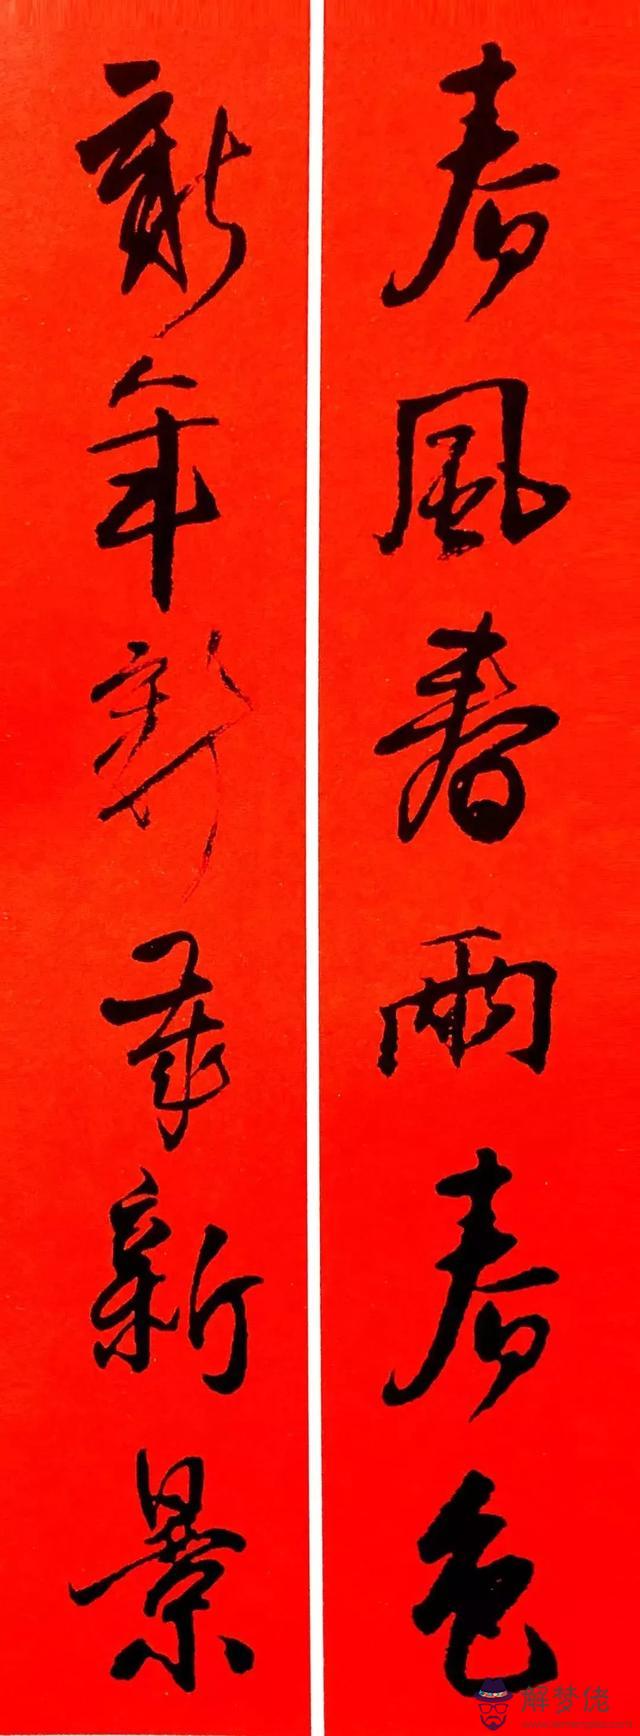 春風春雨春色
新年新歲新景
解梦佬